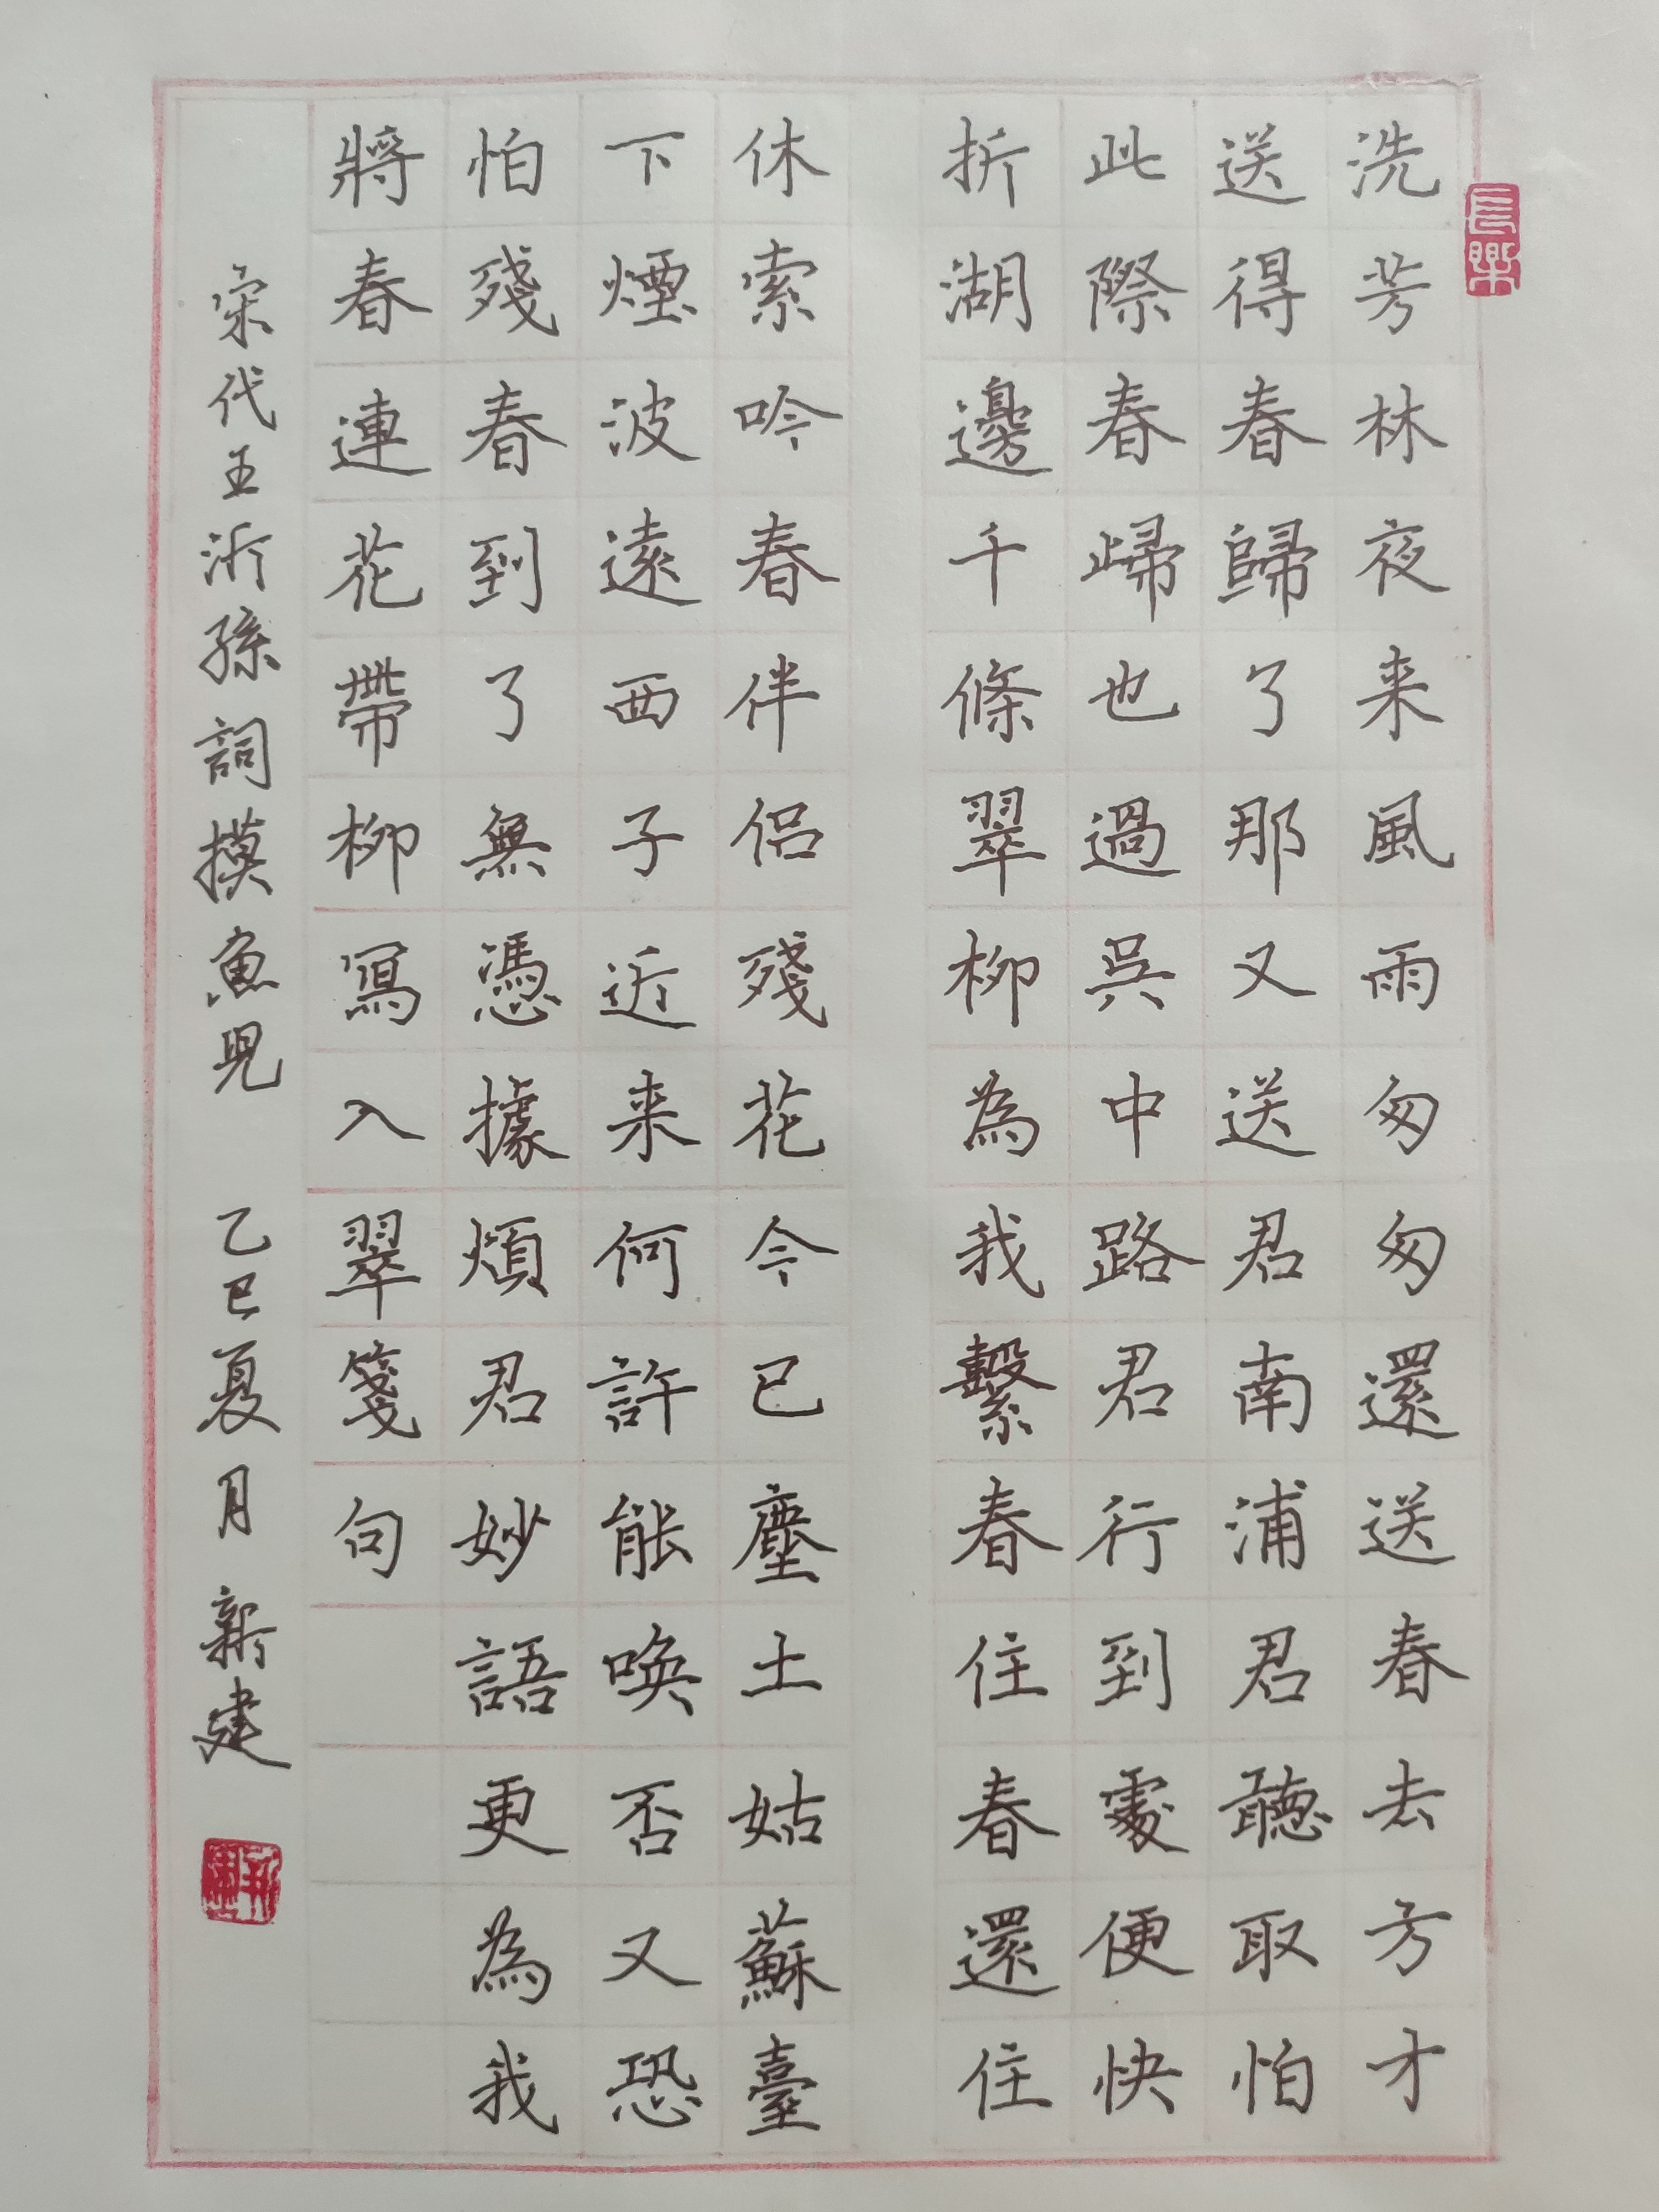 洗芳林夜来風雨匆匆還送春去方才
送得春歸了那又送君南浦君聽取怕
此際春歸也過吳中路君行到處便快
折湖邊千條翠柳為我繫春住春還住
休索吟春伴侶殘花今已塵土姑蘇臺
下煙波遠西子近来何許能喚否又恐
怕殘春到了無憑據煩君妙語更為我
將春連花帶柳寫入翠箋句
宋代王沂孫詞摸魚兒 乙巳夏月 新建
長樂
新建